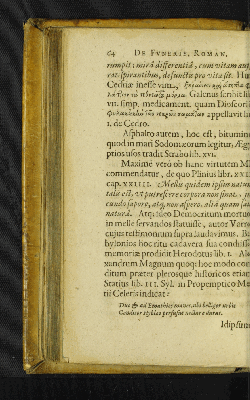 64 DE FVNERIB. ROMAN.
rumpit: mirâ differentiâ, cum vitam au
rat, spirantibus, defunctis pro vita sit.
Cedriæ inesse vim,
Galenus scribit
vii. simp. medicament. quam Dioscor
appellavit in
1. de Cedro.
Asphalto autem, hoc est, bitumin
quod in mari Sodomæorum legitur, Ægy
ptios usos tradit Strabo lib. xvi.
Maximè verò ob hanc virtutem Me
commendatur, de quo Plinius lib. xxi
cap. XXIIII. Mellis quidem ipsum natur
talis est, ut putrescere corpora non sinat,
cundo sapore, atq; non aspero, aliâ quam sali
naturâ. Atq; ideo Democritum mortuo
in melle servandos statuisse, autor Varro
cujus testimonium supra laudavimus. Ba
bylonios hoc ritu cadavera sua condisse
memoriæ prodidit Herodotus lib. 1. Ale
xandrum Magnum quoq; hoc modo con
ditum præter plerosque historicos etiam
Statius lib. III. Syl. in Propemptico Me
tii Celeris indicat:
Duc & ad Emathios manes, ubi belliger urbis
Conditor Hyblæo perfusus nectare durat.
Idipsum